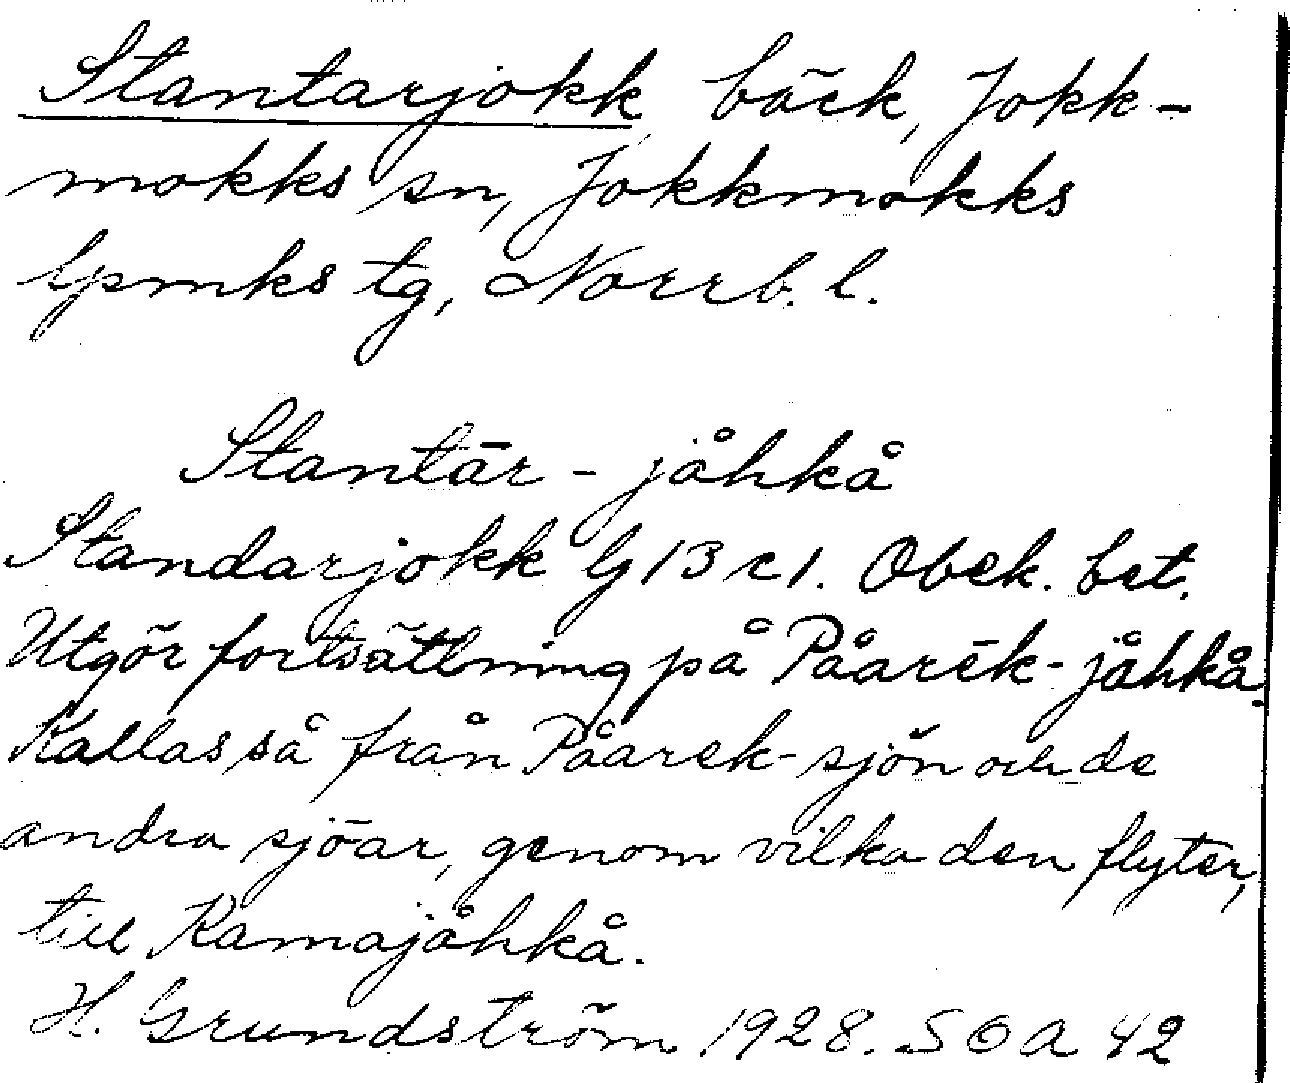 Stantarjokk bäck, Jokk-
mokks sn, Jokkmokks
lpmks tg, Norrb. l.
Stantār - jåhkå
Standarjokk Gj 13 c 1. Obek. bet.
Utgör fortsättning på Påarēk-jåhkå.
Kallas så från Påarek-sjön och de
andra sjöar, genom vilka den flyter,
till Kamajåhkå.
H. Grundström 1928. SOA 42